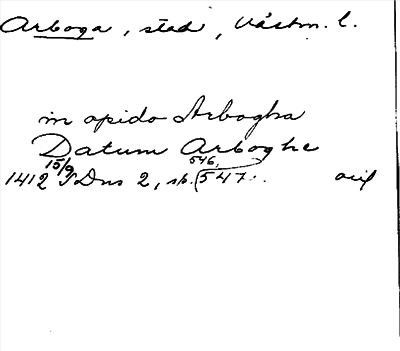 Arboga, stad, Västm. l.
in opido Arbogha
Datum Arboghe
1412 15/9 SDns 2, sp. (546, 547. orig